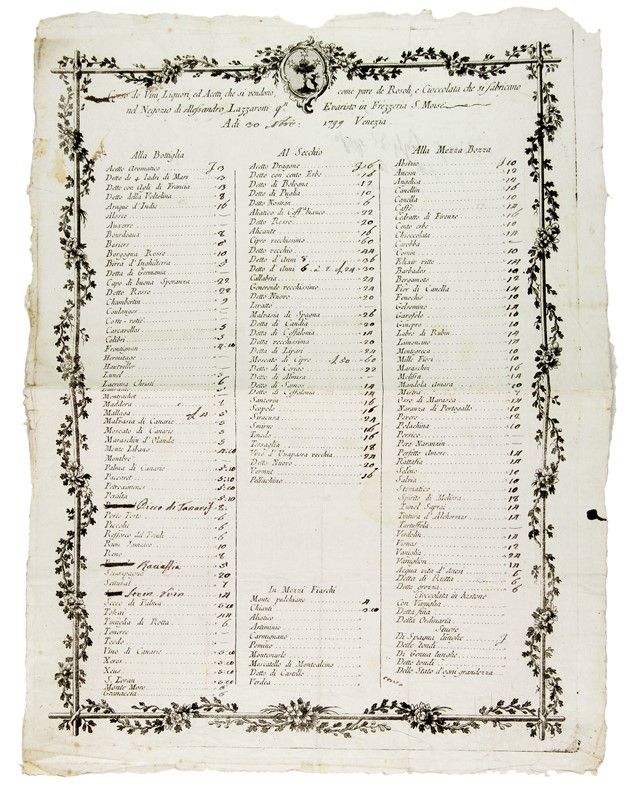 Corso de Vini Liquori, ed Aceti, che si vendono, come pure de Rosolj, e Cioccolata che si fabricano
nel Negozio di Alessandro Lazzaroni qm Evaristo in Frezzeria S. Moisè
Adi 30 Nbre: 1799 Venezia
Alla Bottiglia
Aceto Aromatico 13
Detto de 4 ladri di Mars
Detto con Agli di Francia 13
Detto della Voltolina 8
Araque d'Indie 16
Aloise
Auxerre
Bourdeaux 8
Borgogna Rosso 10
Birra d'Inghilterra 3
Detta di Germania
Capo di buona Speranza 22
Detto Rosso 22
Chambertin 9
Coulanges
Costi rotie
Carcavollos 5
Calibri 5
Frontignan 4:10
Hermitage
Lunel 5
Lacrima Christi 6
Montrachet
Maddera
Mallaga
Malvasia di Canarie 5
Moscato di Canarie 5
Maraschin d'Olanda 5
Monte Libano 4:10
Montbre
Palma di Canarie 5:10
Paccaret 5:10
Petroximenes 5:10
Peralta 5:10
Picco di Tanarif 8
Porto Porto 6
Piccolit 6
Reffosco del Friuli 6
Rum Jamaico 10
Reno 8
Setuval 7
Secco di Palma 5:10
Tokai 14
Tintiglia di Rotta 6
Tonerre
Toedo
Vino di Canarie 5:10
Xeros 5:10
Xeus 5:10
S. Loran 5:10
Monte Moro 6
Granaccia 6
Al Secchio
Aceto Dragone 16
Detto con cento Erbe 16
Detto di Bologna 12
Detto di Puglia 10
Detto Nostran 6
Aliatico di Ceffa bianco 22
Detto Rosso 20
Alicante 16
Cipro vecchissimo 60
Detto vecchio 44
Detto d'Anni 8 36
Detto d'Anni 6 à 2 24 30
Callabria 24
Generoude vecchissimo 24
Detto Nuovo 20
Liratto
Malvasia di Spagna 26
Detta di Candia 20
Detta di Ceffalonia 14
Detta vecchissima 20
Detta di Lipari 24
Moscato di Cipro 50 60
Detto di Cerigo 22
Detto di Samos 14
Detto di Ceffalonia 14
Santorin 16
Scopolo 16
Siracusa 24
Smirne 16
Tenedo 16
Tessaglia 18
Vino d'Ungaria vecchia 24
Detto Nuovo 20
Vermut 20
Piluchino 16
In Mezzi Fiaschi
Monte pulchiano 4
Chianti 3:10
Aliatico
Artiminio
Carmignano
Pomino
Montenarlo
Moscatello di Montealcino
Detto di Castello
Verdea
Alla Mezza Bozza
Absitio 10
Aneson 12
Angelica 14
Canellin 16
Canella 10
Caffè 14
Cedratto di Firenze 16
Cento erbe 10
Chioccolata 14
Carobba
Comin 10
Elixir vitte 14
Barbados 10
Bergamoto 12
Fior di Canella 14
Fenochio 10
Gelsomino 10
Garofolo 10
Ginepro 10
Labro di Rubin 14
Lamoncino 14
Montgoreca 10
Milli Fiori 10
Maraschin 16
Molissa 14
Mandola Amara 10
Mistrà 7
Osso di Marasca 14
Naranza di Portogallo 10
Pevere 12
Polachina 10
Persico
Pero Naransin
Perfetto Amore 14
Rattafià 14
Seleno 10
Salvia 10
Stomatico 10
Spirito di Melissa 18
Tintura d'Alchermes 14
Tartuffola
Verdolin 14
Visnas 12
Vaniglia 24
Vaniglion 14
Acqua vita d'Anesi 6
Detta di Riotta 6
Detta grezza 6
Cioccolata in bastone
Con Vaniglia
Detta fina
Detta Ordinaria
Di Spagna lunghe
Dette tondi
Di Genua lunghe
Dette tondi
Dello Stato d'ogni grandezza